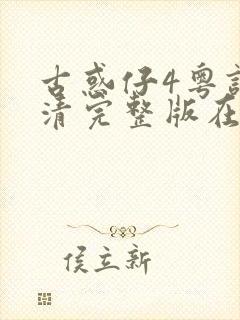 古惑仔4粤
清完整版在
侯立新